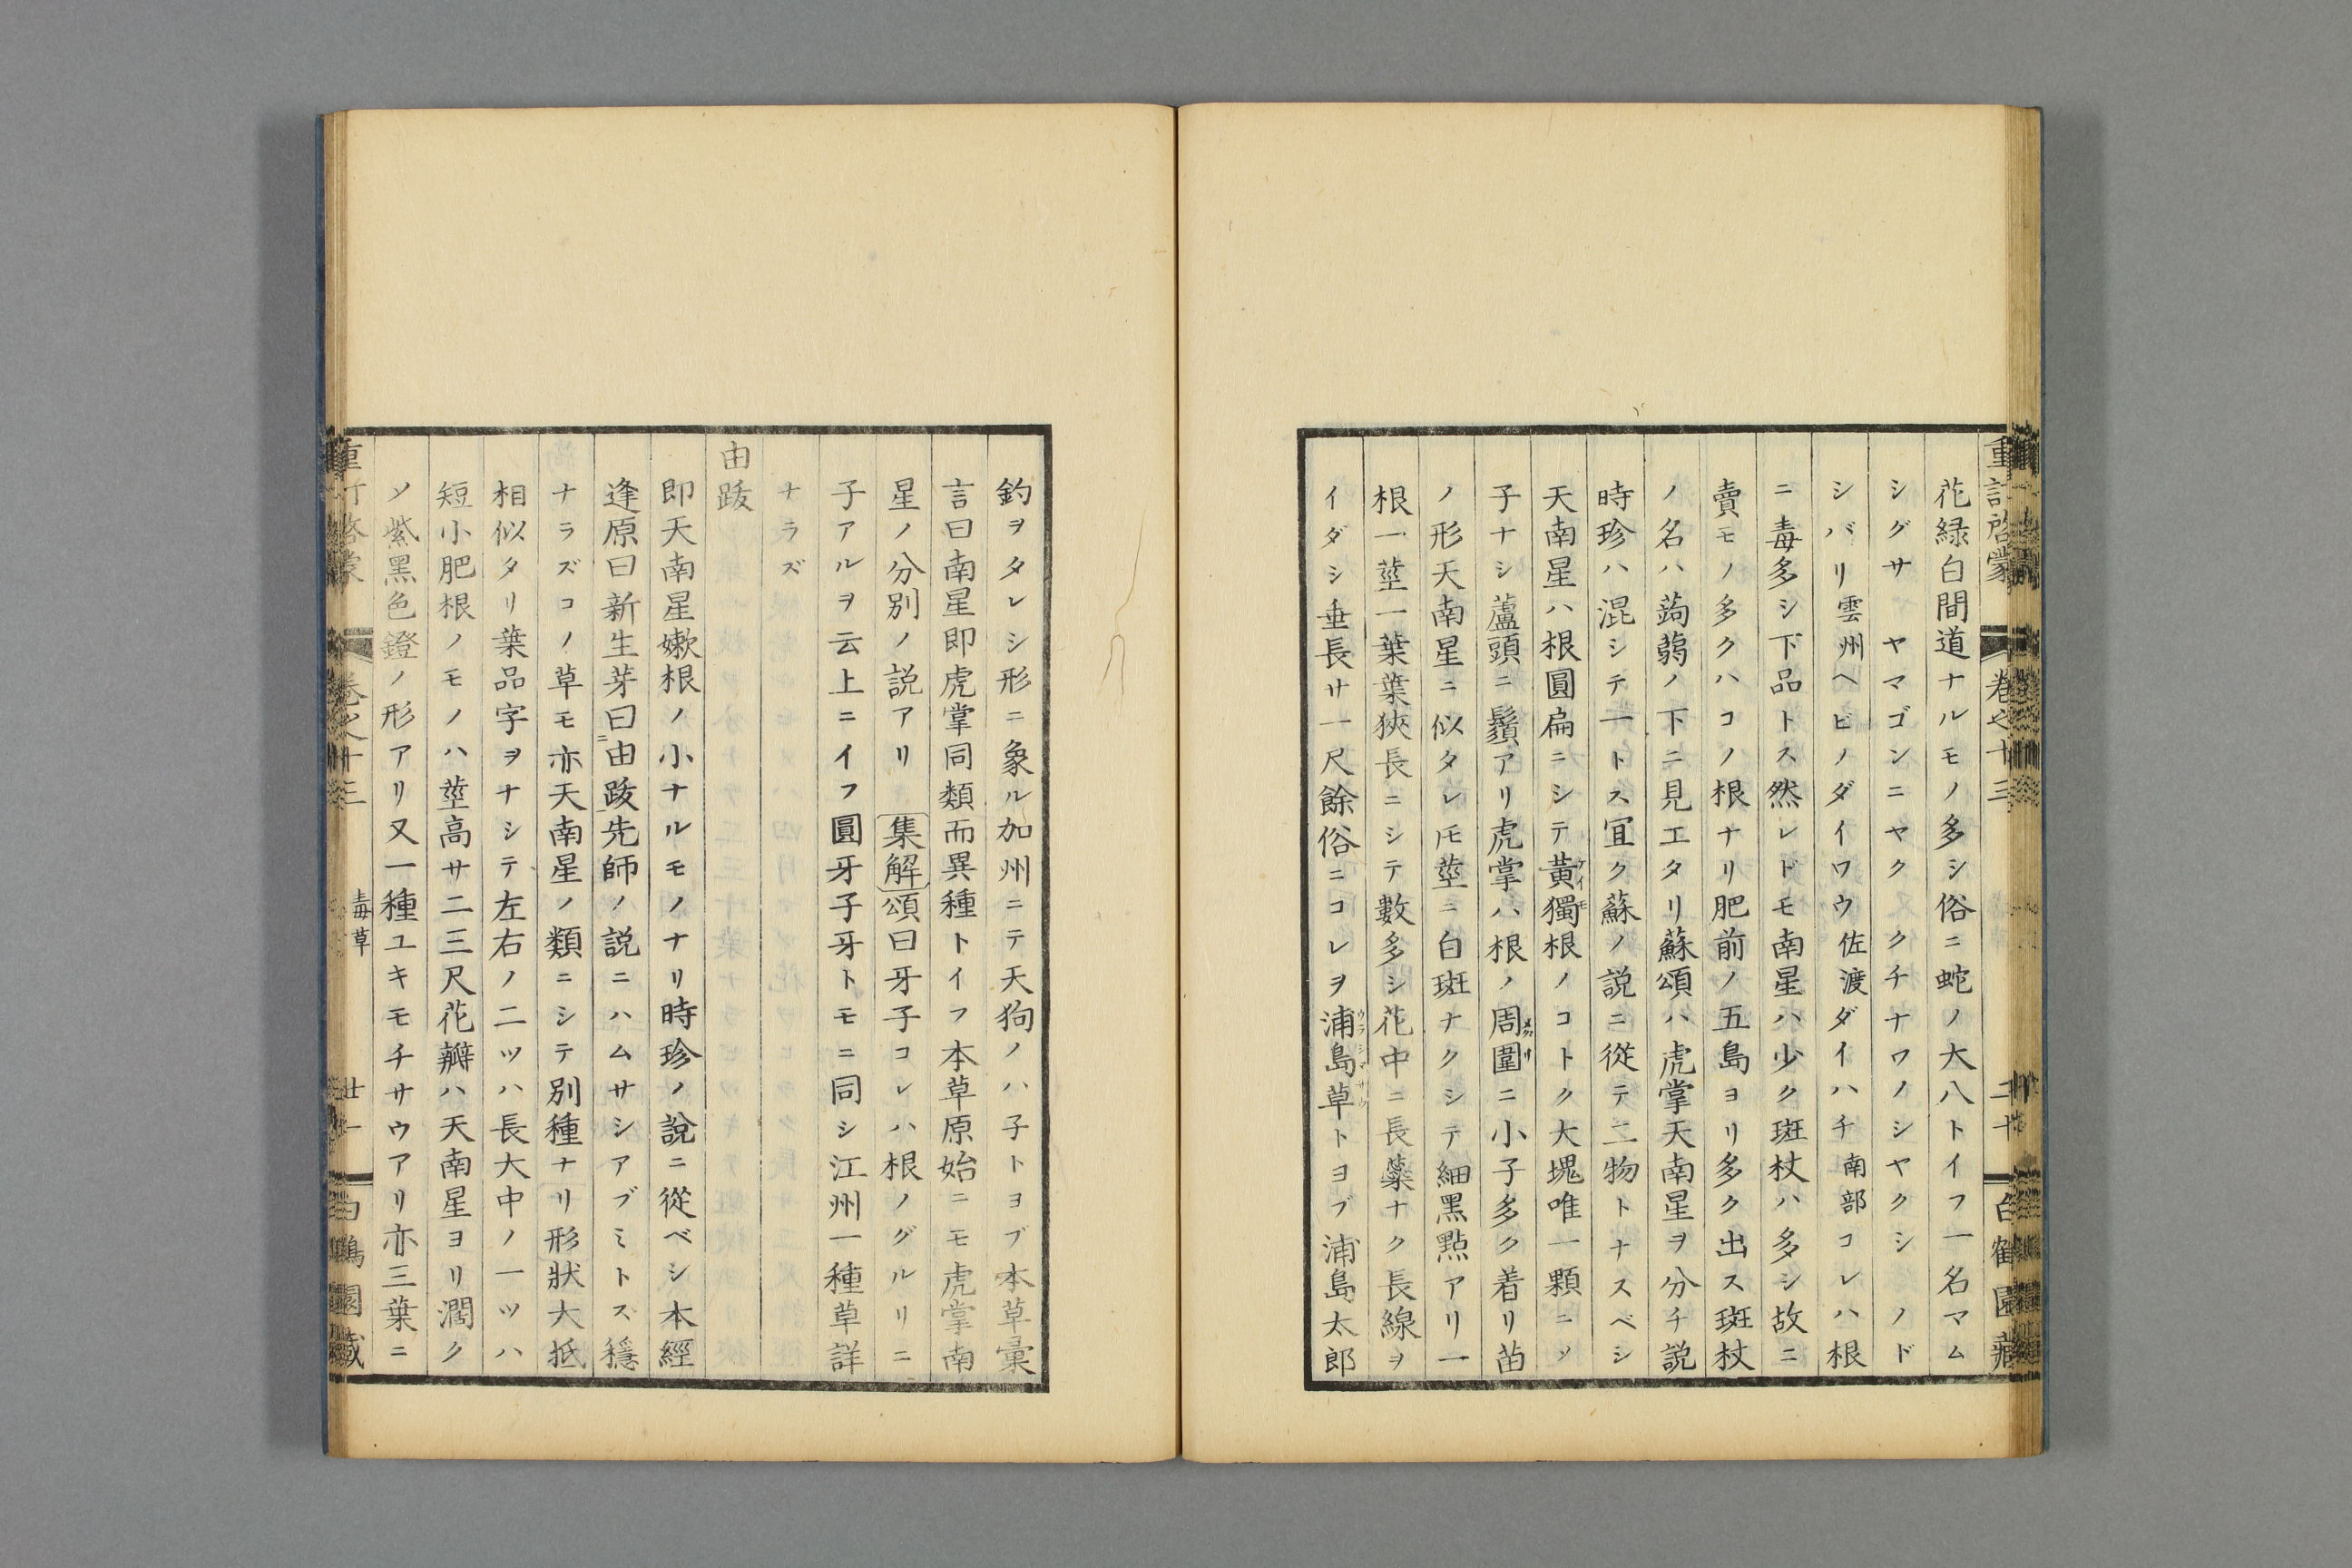 花緑白間道ナルモノ多シ俗ニ蛇ノ大八トイフ一名マム
シグサ ヤマゴンニヤク クチナワノシヤクシ ノド
シバリ雲州ヘビノダイワウ佐渡ダイハチ南部コレハ根
ニ毒多シ下品トス然レドモ南星ハ少ク斑杖ハ多シ故ニ
賣モノ多クハコノ根ナリ肥前ノ五島ヨリ多ク出ス斑杖
ノ名ハ蒟蒻ノ下ニ見エタリ蘇頌ハ虎掌天南星ヲ分チ説
時珍ハ混シテ一トス宜ク蘇ノ説ニ從テ二物トナスベシ
天南星ハ根圓扁ニシテ黃獨根ノコトク大塊唯一顆ニソ
子ナシ蘆頭ニ鬚アリ虎掌ハ根ノ周圍ニ小子多ク着リ苗
ノ形天南星ニ似タレ𪜈莖ニ白斑ナクシテ細黑點アリ一
根一莖一葉葉狹長ニシテ數多シ花中ニ長蘂ナク長線ヲ
イダシ垂長サ一尺餘俗ニコレヲ浦島草トヨブ浦島太郎
重訂啓蒙 卷之十三 二十
釣ヲタレシ形ニ象ル加州ニテ天狗ノハ子トヨブ本草彙
言曰南星即虎掌同類而異種トイフ本草原始ニモ虎掌南
星ノ分別ノ説アリ 集解頌曰牙子コレハ根ノグルリニ
子アルヲ云上ニイフ圓牙子牙トモニ同シ江州一種草詳
ナラズ
由跋
即天南星嫰根ノ小ナルモノナリ時珍ノ說ニ從ベシ本經
逢原曰新生芽曰由跋先師ノ説ニハムサシアブミトス穩
ナラズコノ草モ亦天南星ノ類ニシテ別種ナリ形狀大抵
相似タリ葉品字ヲナシテ左右ノ二ツハ長大中ノ一ツハ
短小肥根ノモノハ莖高サ二三尺花瓣ハ天南星ヨリ濶ク
ノ紫黑色鐙ノ形アリ又一種ユキモチサウアリ亦三葉ニ
卷之十三 毒草 廿一